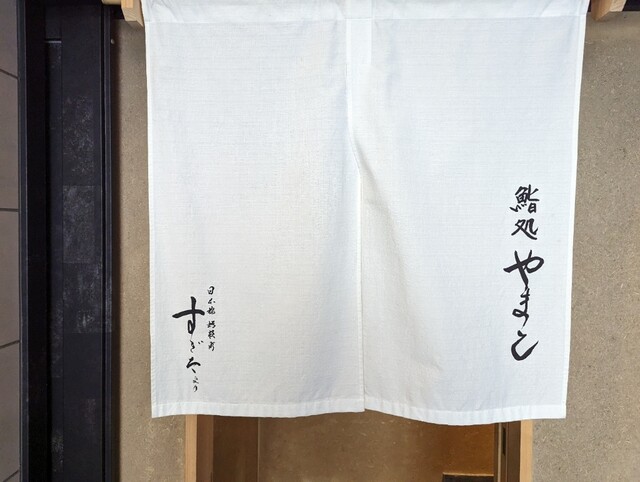 鮨処
やまと
日本橋 蛎殻町
すぎたより